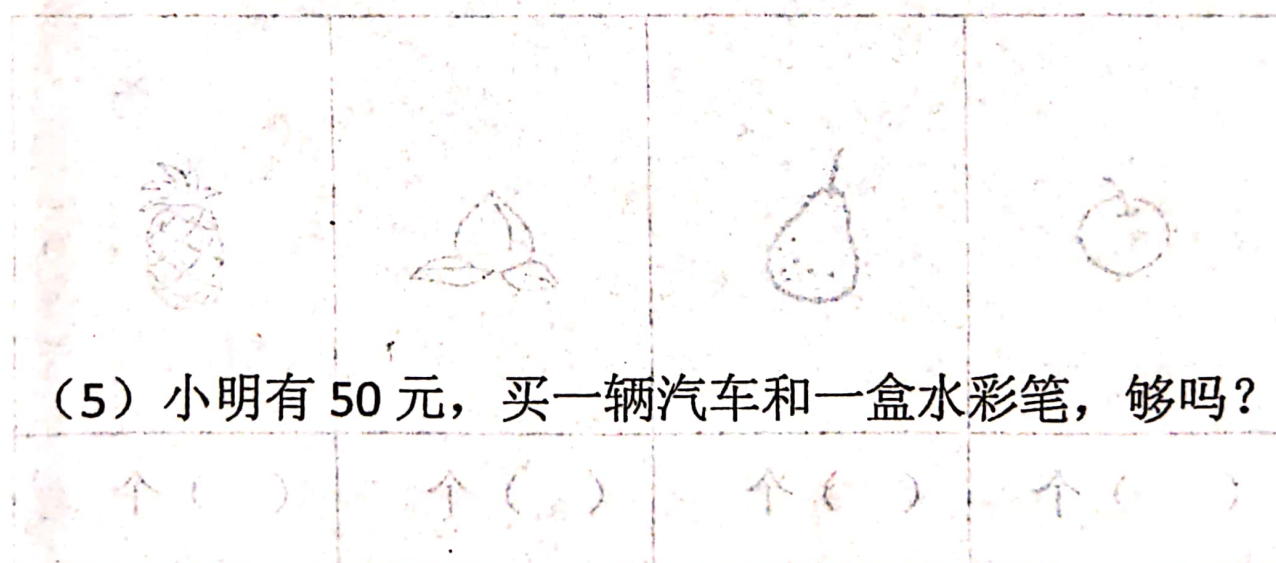 （5）小明有 50 元，买一辆汽车和一盒水彩笔，够吗？
个（ ） 个（ ） 个（ ） 个（ ）